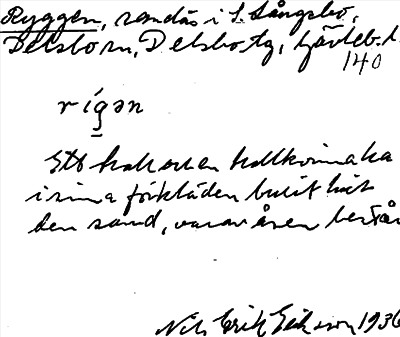 Ryggen, sandås i L. Långsbo,
Delsbo sn, Delsbo tg, Gävleb. l.
140
rígən
Ett
i sina förkläden burit hit
den sand, varav åsen består
Nils Erik Eriksson 1936